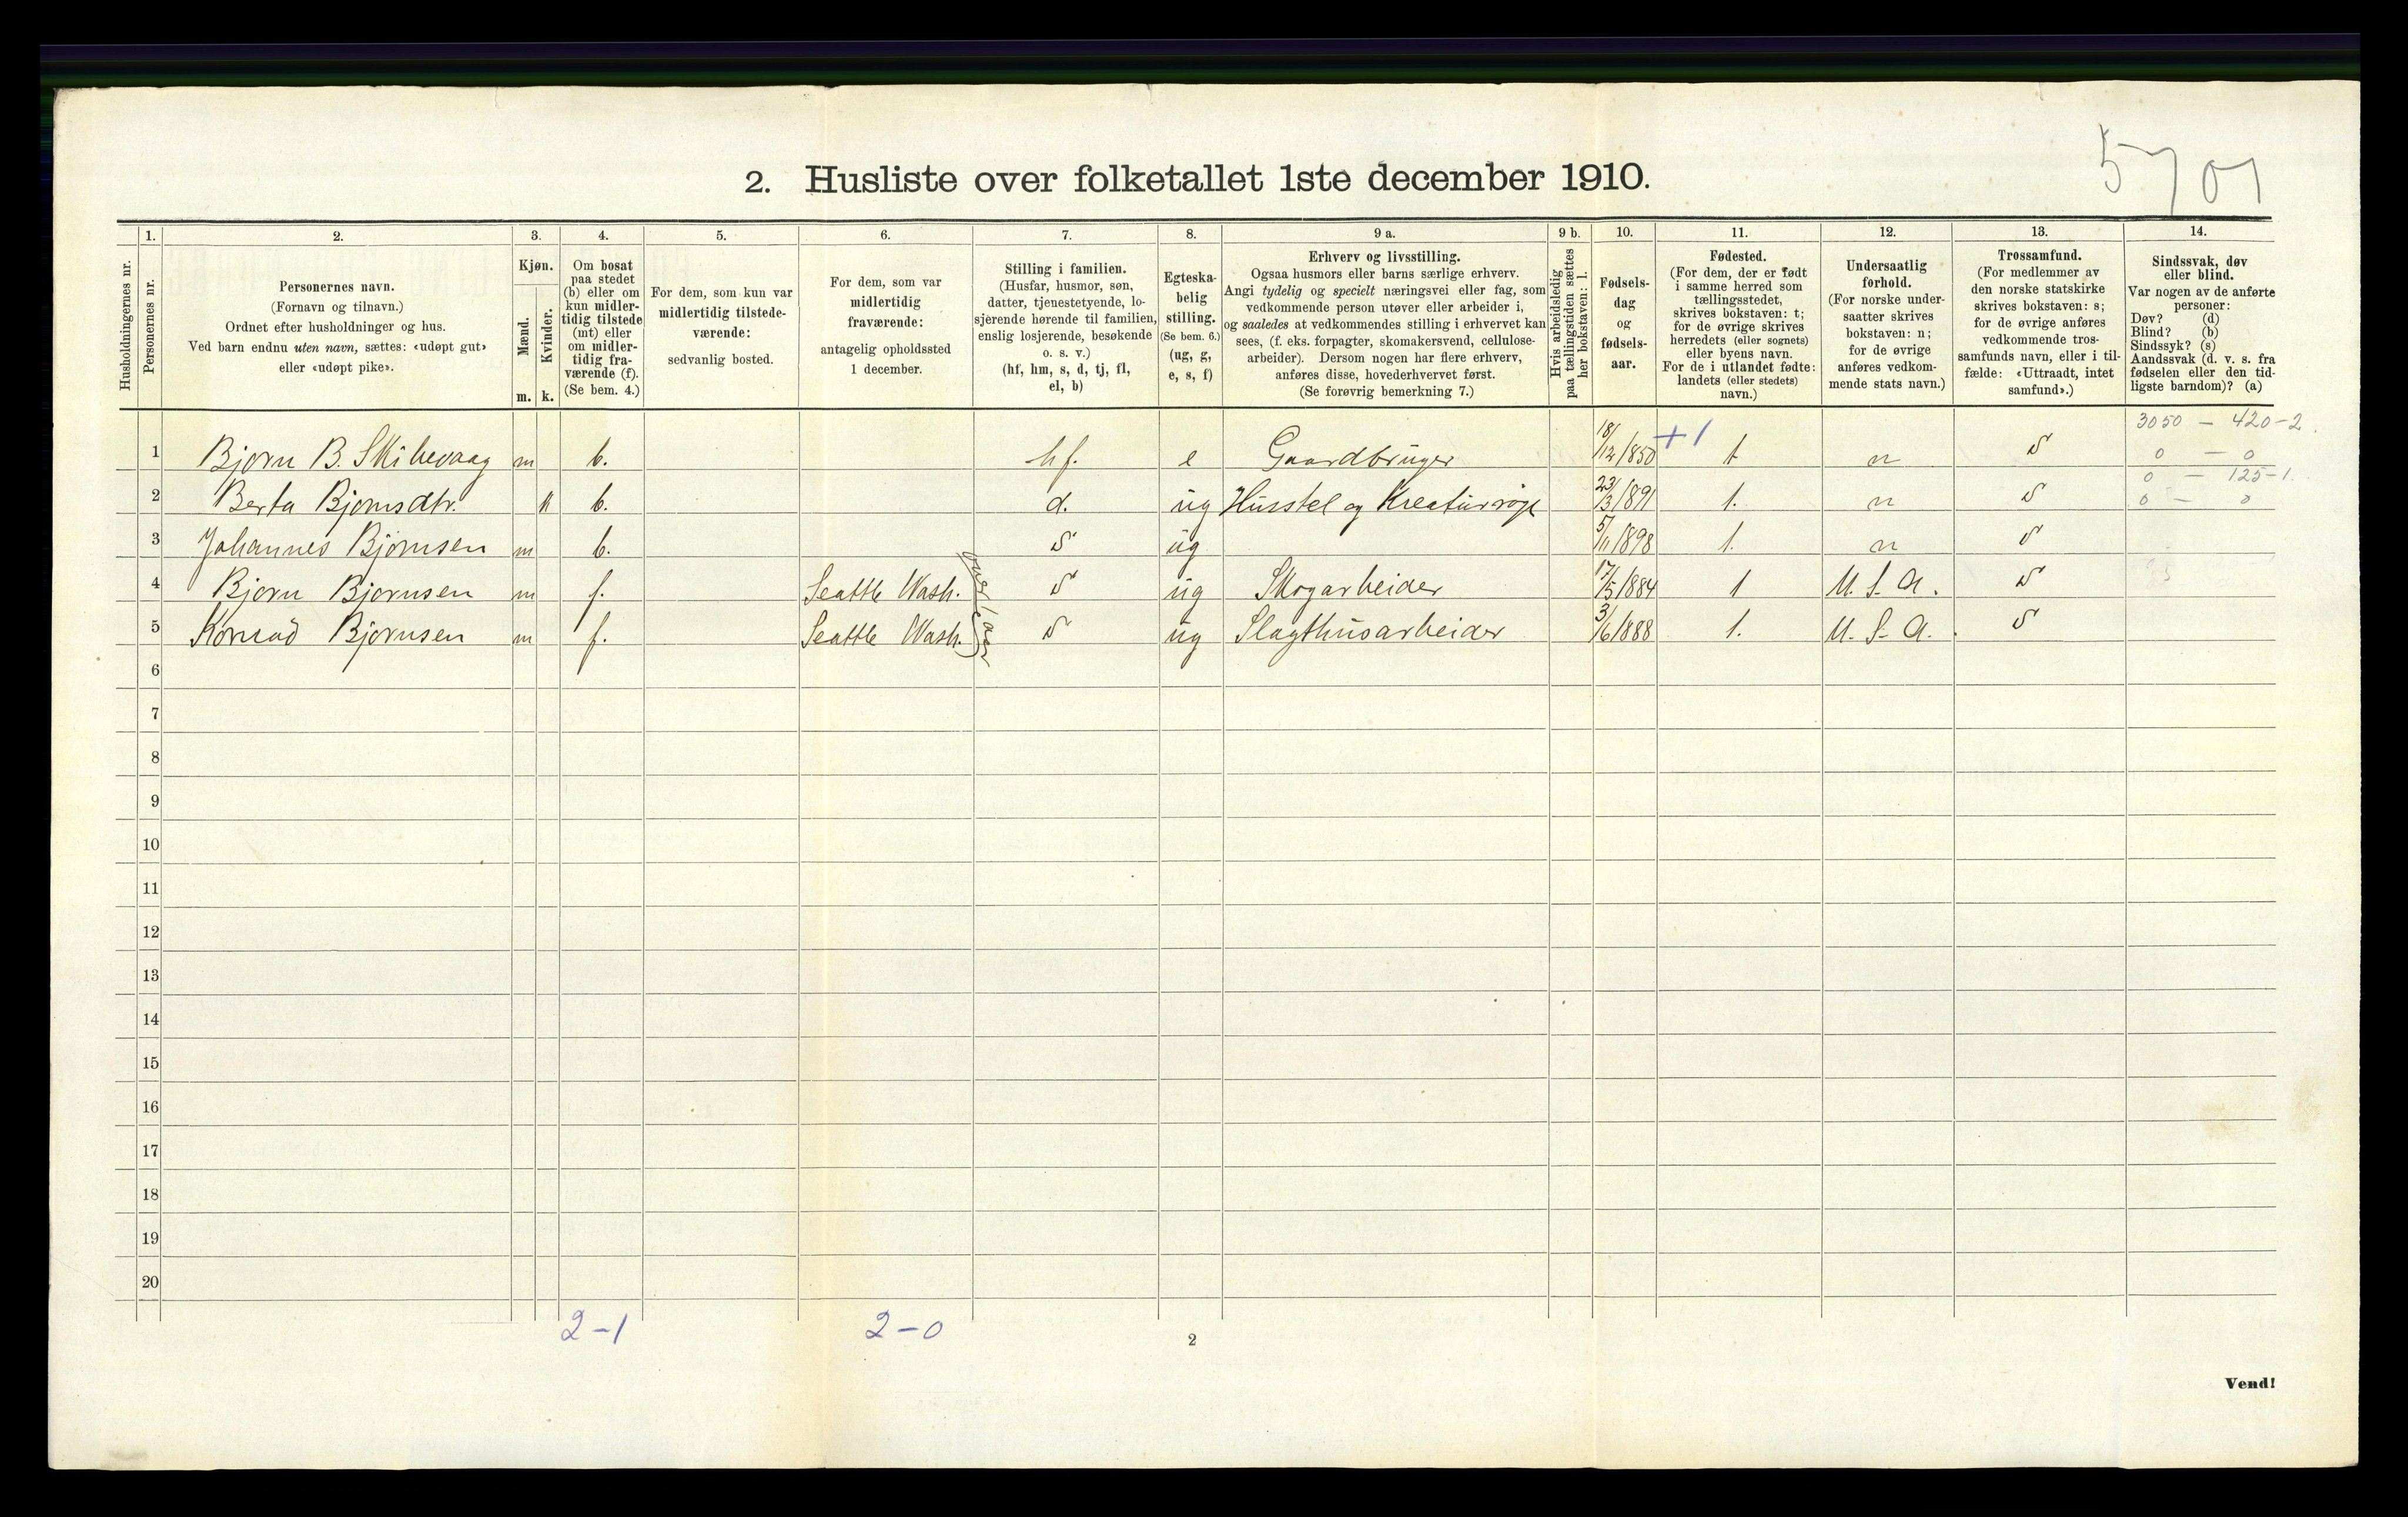 5701
2. Husliste over folketallet 1ste december 1910.
Husholdningernes nr.
1. Personernes nr.
2. Personernes navn.
(Fornavn og tilnavn.)
Ordnet efter husholdninger og hus.
Ved barn endnu uten navn, sættes: «udøpt gut»
eller «udøpt pike».
3. Kjøn.
Mænd. m.
Kvinder. k.
4. Om bosat
paa stedet
(b) eller om
kun midler-
tidig tilstede
(mt) eller
om midler-
tidig fra-
værende (f).
(Se bem. 4.)
5. For dem, som kun var
midlertidig tilstede-
værende:
sedvanlig bosted.
6. For dem, som var
midlertidig
fraværende:
antagelig opholdssted
1 december.
7. Stilling i familien.
(Husfar, husmor, søn,
datter, tjenestetyende, lo-
sjerende hørende til familien,
enslig losjerende, besøkende
o. s. v.)
(hf, hm, s, d, tj, fl,
el, b)
8. Egteska-
belig
stilling.
(Se bem. 6.)
(ug, g,
e, s, f)
9 a. Erhverv og livsstilling.
Ogsaa husmors eller barns særlige erhverv.
Angi tydelig og specielt næringsvei eller fag, som
vedkommende person utøver eller arbeider i,
og saaledes at vedkommendes stilling i erhvervet kan
sees, (f. eks. forpagter, skomakersvend, cellulose-
arbeider). Dersom nogen har flere erhverv,
anføres disse, hovederhvervet først.
(Se forøvrig bemerkning 7.)
9 b. Hvis arbeidsledig
paa tællingstiden sættes
her bokstaven: l.
10. Fødsels-
dag
og
fødsels-
aar.
11. Fødested.
(For dem, der er født
i samme herred som
tællingsstedet,
skrives bokstaven: t;
for de øvrige skrives
herredets (eller sognets)
eller byens navn.
For de i utlandet fødte:
landets (eller stedets)
navn.)
12. Undersaatlig
forhold.
(For norske under-
saatter skrives
bokstaven: n;
for de øvrige
anføres vedkom-
mende stats navn.)
13. Trossamfund.
(For medlemmer av
den norske statskirke
skrives bokstaven: s;
for de øvrige anføres
vedkommende tros-
samfunds navn, eller i til-
fælde: «Uttraadt, intet
samfund».)
14. Sindssvak, døv
eller blind.
Var nogen av de anførte
personer:
Døv? (d)
Blind? (b)
Sindssyk? (s)
Aandssvak (d. v. s. fra
fødselen eller den tid-
ligste barndom)? (a)
3050 - 420-2
0 - 0
0 - 125-1
0 - 0
1 Bjørn B. Skibevaag m b. hf. e Gaardbruger 18/12 1850 +1 t n s
2 Berta Bjørnsdtr. k b. d. ug Husstel og Kreaturrøgt 23/3 1891 t. n s
3 Johannes Bjørnsen m b. s ug 5/11 1898 t. n s
4 Bjørn Bjørnsen m f. Seattle Wash. s ug Skogarbeider 17/5 1884 t U. S. A. s
5 Konrad Bjørnsen m f. Seattle Wash. s ug Slagthusarbeider 3/6 1888 t. U. S. A. s
over 1 aar
6
7
8
9
10
11
12
13
14
15
16
17
18
19
20
2-1 2-0
2
Vend!